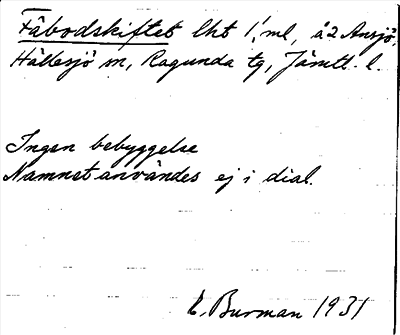 Fäbodskiftet lht 1/ml, å 2 Ansjö,
Hällesjö sn, Ragunda tg, Jämtl. l.
Ingen bebyggelse
Namnet användes ej i dial.
E. Burman 1931